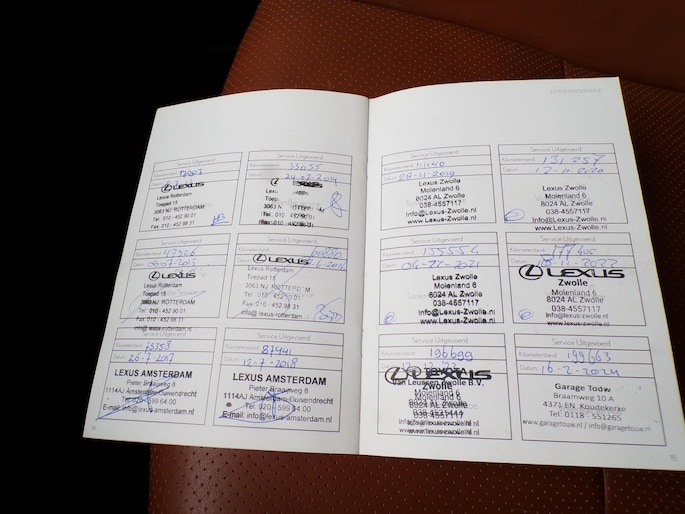 Service Uitgevoerd
Kilometerstand:
Datum:
LEXUS
Lexus Rotterdam
Toepad 15
3063 NJ ROTTERDAM
Tel. 010 - 452 90 01
Fax 010 - 452 98 31
Service Uitgevoerd
Kilometerstand: 33055
Datum: 24-07-2014
3063 NJ ROTTERDAM
Tel. 010 - 452 90 01
Service Uitgevoerd
Kilometerstand: 47326
Datum:
LEXUS
Lexus Rotterdam
Toepad 15
3063 NJ ROTTERDAM
Tel. 010 - 452 90 01
Fax. 010 - 452 98 31
info@lexus-rotterdam
Service Uitgevoerd
Kilometerstand:
Datum:
LEXUS
Lexus Rotterdam
Toepad 15
3063 NJ
Tel. 010 - 452 90 01
info@lexus-rotterdam
Service Uitgevoerd
Kilometerstand:
Datum: 26-7-2017
LEXUS AMSTERDAM
Pieter Braaijweg 8
1114AJ Amsterdam-Duivendrecht
Tel. 020 - 599 64 00
E-mail: info@lexus-amsterdam
Service Uitgevoerd
Kilometerstand: 87441
Datum: 12-7-2018
LEXUS AMSTERDAM
Pieter Braaijweg 8
1114AJ Amsterdam-Duivendrecht
Tel. 020 - 599 64 00
E-mail: info@lexus-amsterdam
LEXUS ONDERHOUD
Service Uitgevoerd
Kilometerstand: 111140
Datum: 28-11-2019
Lexus Zwolle
Molenland 6
8024 AL Zwolle
038-4557117
Info@Lexus-Zwolle.nl
www.Lexus-Zwolle.nl
Service Uitgevoerd
Kilometerstand: 131 257
Datum: 12-11-2020
Lexus Zwolle
Molenland 6
8024 AL Zwolle
038-4557117
Info@Lexus-Zwolle.nl
www.Lexus-Zwolle.nl
Service Uitgevoerd
Kilometerstand: 155554
Datum: 04-12-2021
Lexus Zwolle
Molenland 6
8024 AL Zwolle
038-4557117
Info@Lexus-Zwolle.nl
www.Lexus-Zwolle.nl
Service Uitgevoerd
Kilometerstand:
Datum:
LEXUS
Zwolle
Molenland 6
8024 AL Zwolle
038-4557117
Info@lexus-zwolle.nl
www.lexus-zwolle.nl
Service Uitgevoerd
Kilometerstand: 196699
Datum:
LEXUS
TOYOTA
van Leussen Zwolle B.V.
Zwolle
Molenland 6
8024 AL Zwolle
Service Uitgevoerd
Kilometerstand: 199663
Datum: 16-2-2024
Garage Touw
Braamweg 10 A
4371 EN Koudekerke
Tel: 0118 - 551265
www.garagetouw.nl / info@garagetouw.nl
15